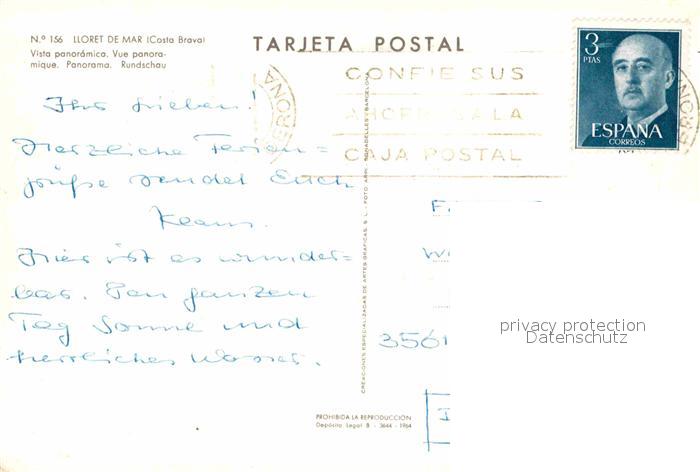 N.º 156 LLORET DE MAR (Costa Brava)
Vista panorámica. Vue panora-
mique. Panorama. Rundschau
TARJETA POSTAL
CONFIE SUS
AHORROS A LA
CAJA POSTAL
GERONA
GERONA
3
PTAS
ESPAÑA
CORREOS
Ihr Lieben!
Herzliche Ferien=
grüße sendet Euch
Klaus.
Hier ist es wunder=
bar. Den ganzen
Tag Sonne und
herrliches Wasser.
CREACIONES ESPECIALIZADAS DE ARTES GRAFICAS, S. L. - FOTO
BARCELONA
F
Wi
3561
privacy protection
Datenschutz
PROHIBIDA LA REPRODUCCIÓN
Depósito Legal B - 3644 - 1964